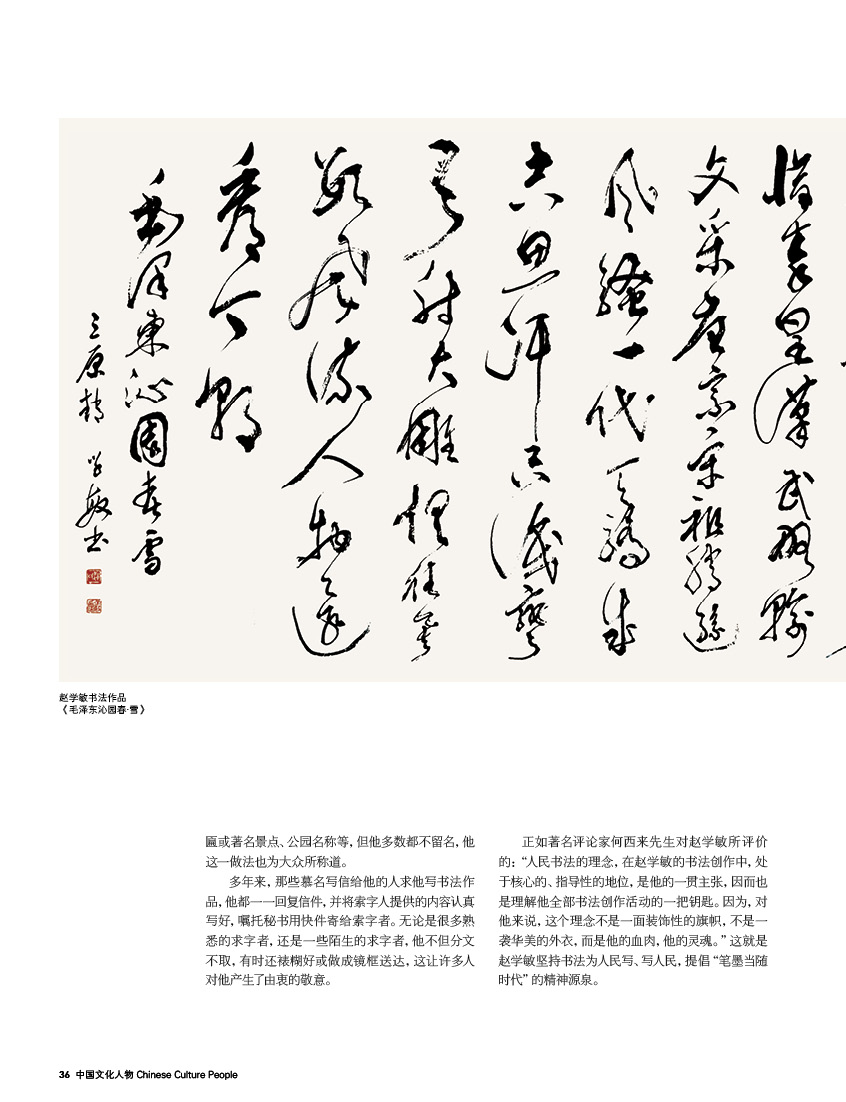 惜秦皇漢武略輸
文采唐宗宋祖稍遜
风骚一代天骄成
吉思汗只識彎
弓射大雕俱往矣
数风流人物还
看今朝
毛泽東沁園春雪
三原趙学敏书
赵学敏书法作品
《毛泽东沁园春·雪》
匾或著名景点、公园名称等，但他多数都不留名，他
这一做法也为大众所称道。
多年来，那些慕名写信给他的人求他写书法作
品，他都一一回复信件，并将索字人提供的内容认真
写好，嘱托秘书用快件寄给索字者。无论是很多熟
悉的求字者，还是一些陌生的求字者，他不但分文
不取，有时还裱糊好或做成镜框送达，这让许多人
对他产生了由衷的敬意。
正如著名评论家何西来先生对赵学敏所评价
的：“人民书法的理念，在赵学敏的书法创作中，处
于核心的、指导性的地位，是他的一贯主张，因而也
是理解他全部书法创作活动的一把钥匙。因为，对
他来说，这个理念不是一面装饰性的旗帜，不是一
袭华美的外衣，而是他的血肉，他的灵魂。”这就是
赵学敏坚持书法为人民写、写人民，提倡“笔墨当随
时代”的精神源泉。
36 中国文化人物 Chinese Culture People